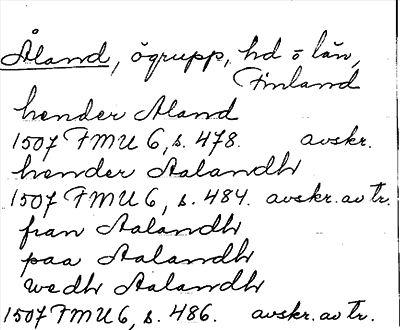 Åland, ögrupp, hd o län,
Finland
hender Aland
1507 FMU 6, s. 478. avskr.
hender Aalandh
1507 FMU 6, s. 484. avskr. av tr.
fran Aalandh
paa Aalandh
wedh Aalandh
1507 FMU 6, s. 486. avskr. av tr.